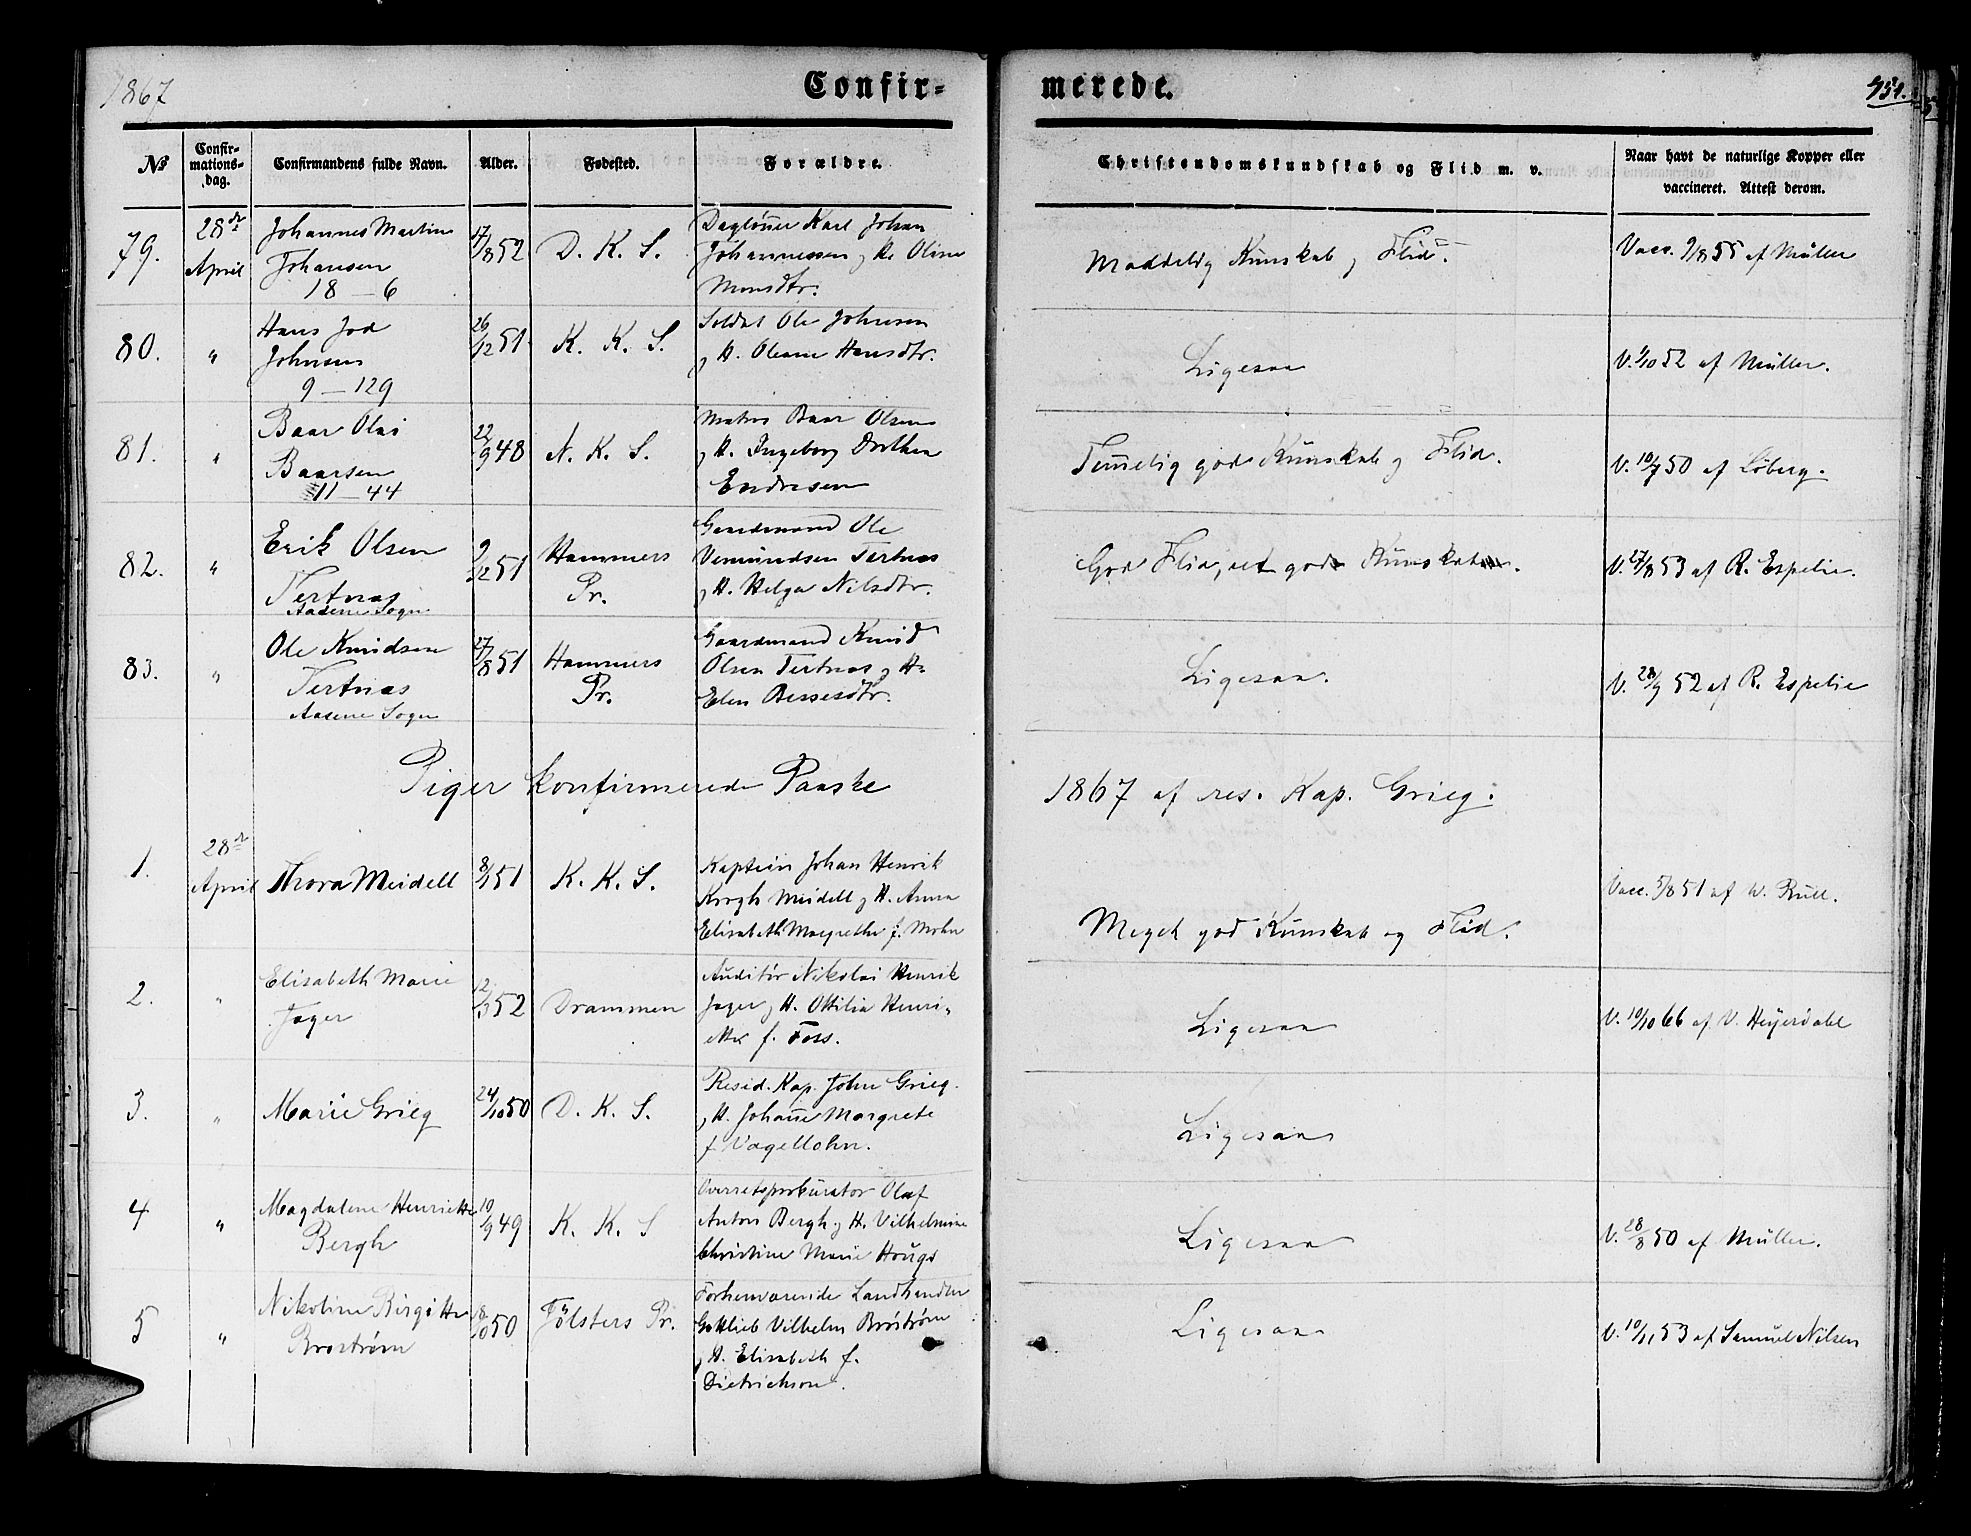 1867
Confir-
merede.
No
Confir-
mations-
dag.
Confirmandens fulde Navn.
Alder.
Fødested.
Forældre.
Christendomskundskab og Flid m. v.
Naar havt de naturlige Kopper eller
vaccineret. Attest derom.
79.
28de
April
Johannes Martin
Johansen
18 — 6
17/8 52
D. K. S.
Dagløn̄er Karl Johan
Johannessen og H. Oline
Monsdtr.
Maadelig Kunskab og Flid.
Vacc. 9/8 55 af Müller
80.
"
Hans Jod
Johnsen
9 — 129
26/12 51
K. K. S.
Soldat Ole Johnsen
og H. Oleane Hansdtr.
Ligesaa
V. 1/10 52 af Müller.
81.
"
Baar Olai
Baarsen
11 — 44
22/9 48
N. K. S.
Matros Baar Olsen
og H. Ingeborg Dorthea
Endresen
Tem̄elig god Kunskab og Flid.
V. 10/7 50 af Løberg.
82.
"
Erik Olsen
Tertnæs
Aasene Sogn
9/12 51
Hammers
Pr.
Gaardmand Ole
Vemundsen Tertnæs
og H. Helga Nilsdtr.
God Flid, et god Kunskab.
V. 27/8 53 af R. Espelie.
83.
"
Ole Knudsen
Tertnæs
Aasene Sogn
27/8 51
Hammers
Pr.
Gaardmand Knud
Olsen Tertnæs og H.
Elen Bessesdtr.
Ligesaa.
V. 28/7 52 af R. Espelie
Piger konfirmerede Paaske
1867 af res. Kap. Grieg.
1.
28de
April
Thora Meidell
8/1 51
K. K. S.
Kaptein Johan Henrik
Krogh Meidell og H. Anna
Elisabeth Margrethe f. Mohn
Meget god Kunskab og Flid.
Vacc. 5/8 51 af W. Rull.
2.
"
Elisabeth Marie
Jæger
12/3 52
Drammen
Auditør Nikolai Henrik
Jæger og H. Ottilia Henri-
ette f. Foss.
Ligesaa
V. 10/10 66 af V. Heyerdahl
3.
"
Marie Grieg
24/10 50
D. K. S.
Resid. Kap. John Grieg.
og H. Johan̄e Margrete
f Vogellohn.
Ligesaa
4
"
Magdalene Henriette
Bergh
10/9 49
K. K. S
Overretsprokurator Olaf
Anton Bergh og H. Vilhelmine
Christine Marie Hougs
Ligesaa
V. 28/8 50 af Müller.
5
"
Nikoline Birgitte
Brostrøm
18/10 50
Jølsters Pr.
Forhenværende Landhandler
Gottlieb Vilhelm Broström
og H. Elisabeth f.
Dietrichson.
Ligesaa
V. 10/11 53 af Samuel Nilsen